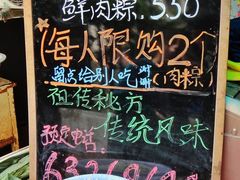 鲜肉粽.550
每人限购2个
留点给别人吃谢谢(肉粽)
祖传秘方
传统风味
预定电话: